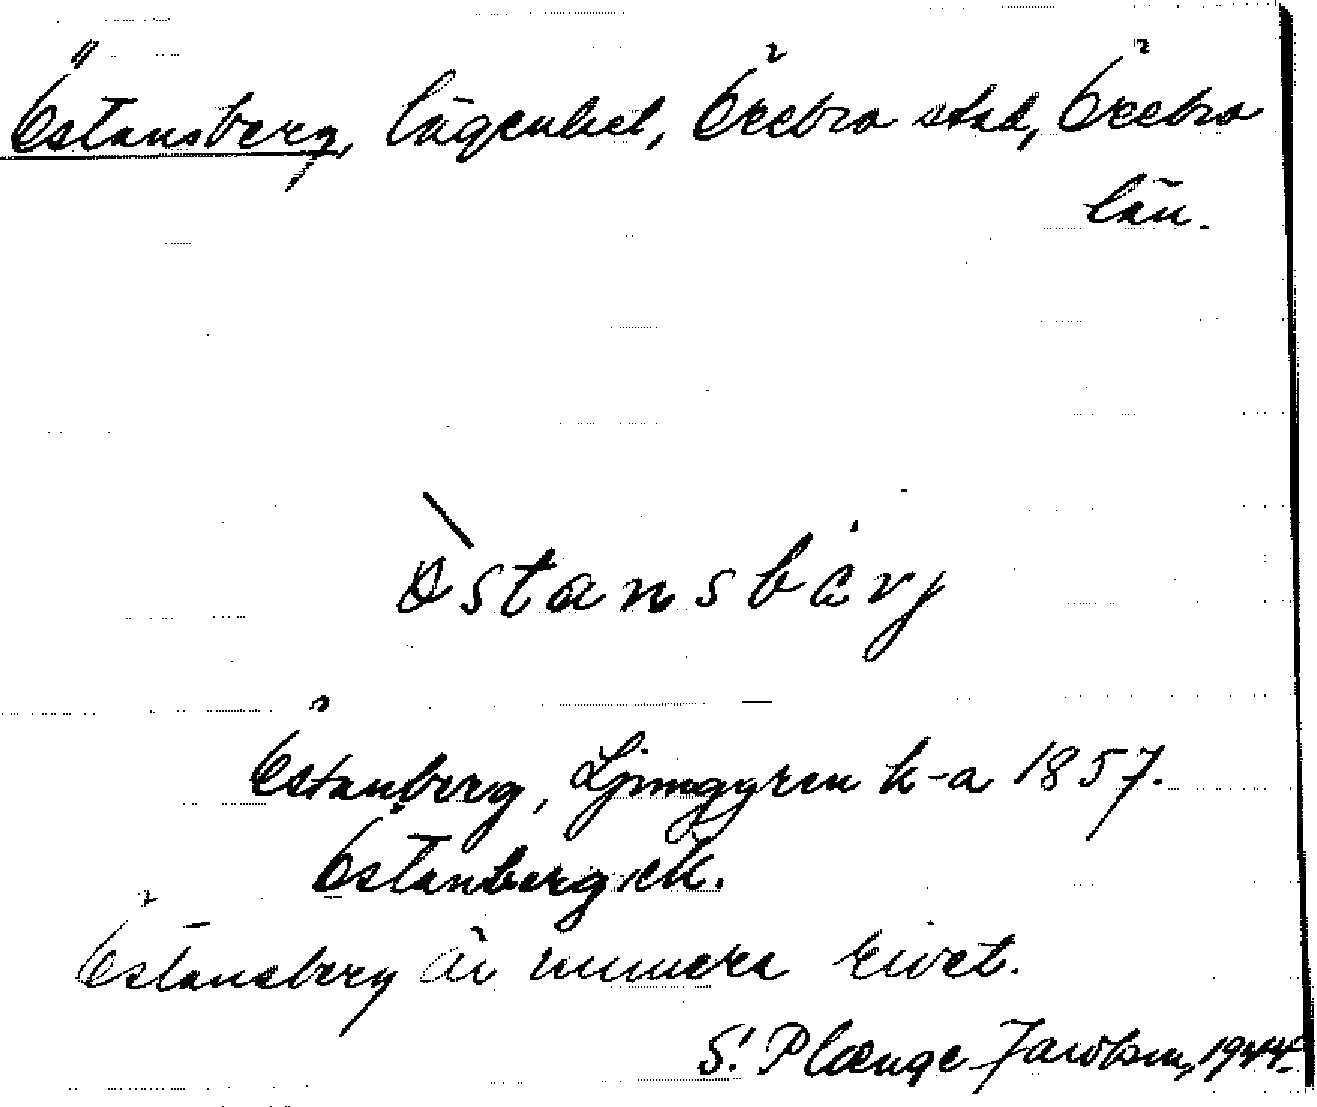 Östansberg, lägenhet, Örebro stad, Örebro
län.
östansbärj
Östanberg, Ljunggren k-a 1857.
Östanberg, ek.
Östansberg är numera rivet.
S. Plænge Jacobson, 1944